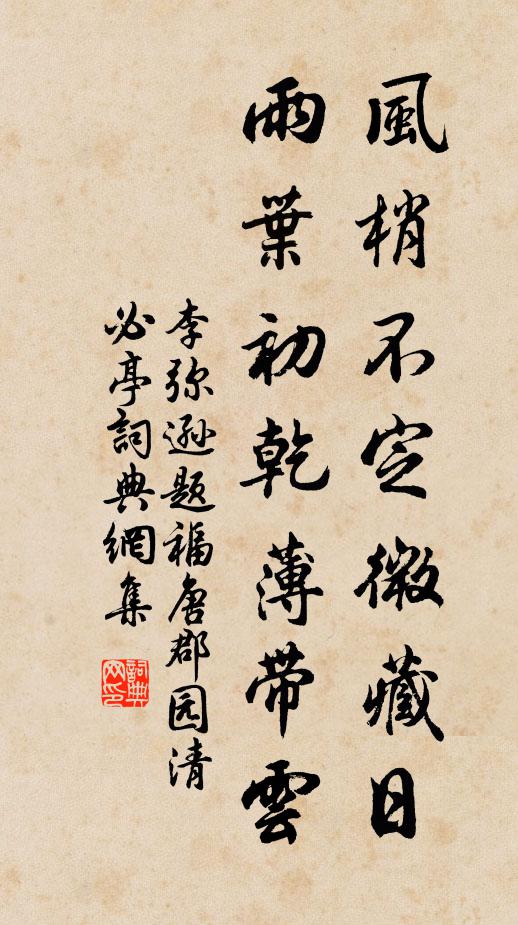 風梢不定微藏日
雨葉初乾薄帶雲
李弥遜題福唐郡园清
必亭詞典網集
詞典网印